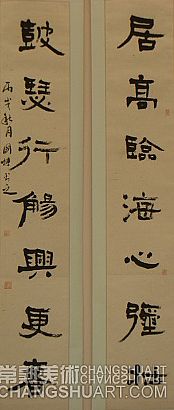 居高臨海心彌
鼓瑟行觴興更
丙戌秋月
常熟美術 CHANGSHUART
CHANGSHUART.COM